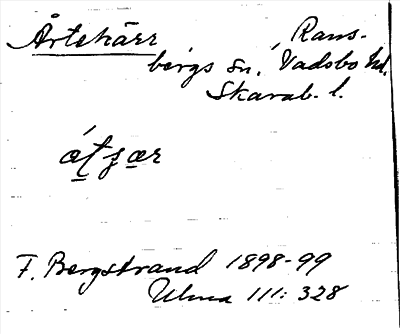 Årtekärr, Rans-
bergs sn. Vadsbo hd.
Skarab. l.
átʂær
F. Bergstrand 1898-99
Ulma 111: 328